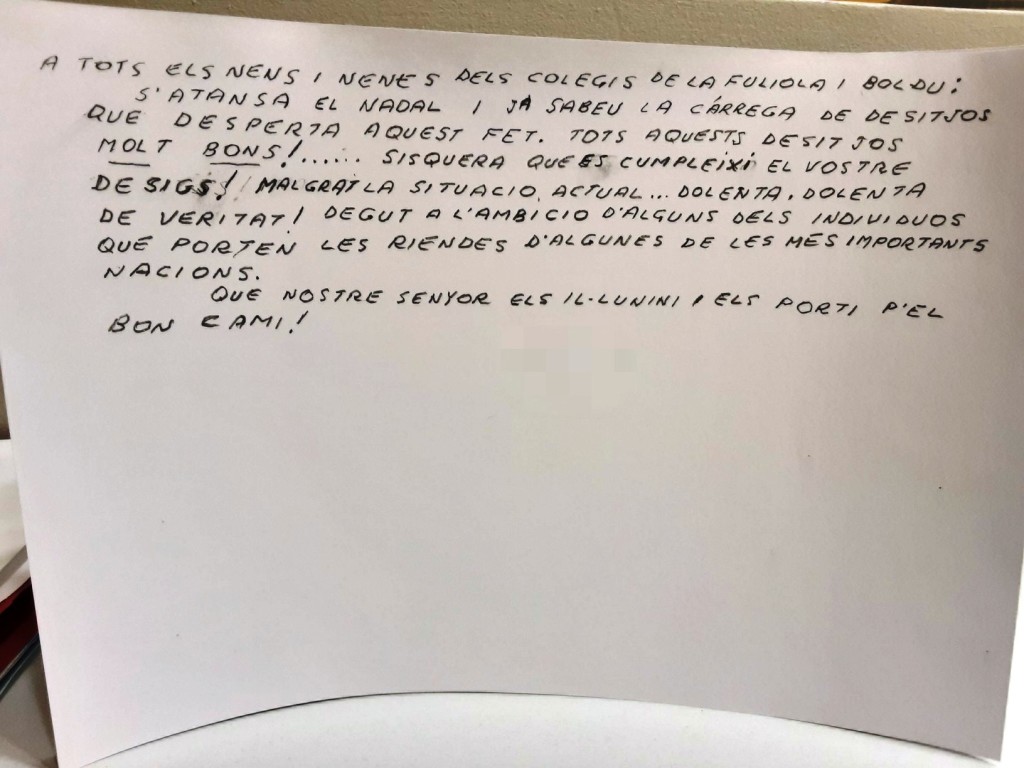 A TOTS ELS NENS I NENES DELS COLEGIS DE LA FULIOLA I BOLDU:
S'ATANSA EL NADAL I JÀ SABEU LA CÀRREGA DE DESITJOS
QUE DESPERTA AQUEST FET. TOTS AQUESTS DESITJOS
MOLT BONS!...... SISQUERA QUE ES CUMPLEIXI EL VOSTRE
DESIGS! MALGRAT LA SITUACIO, ACTUAL... DOLENTA, DOLENTA
DE VERITAT! DEGUT A L'AMBICIO D'ALGUNS DELS INDIVIDUOS
QUE PORTEN LES RIENDES D'ALGUNES DE LES MÉS IMPORTANTS
NACIONS.
QUE NOSTRE SENYOR ELS IL-LUNINI I ELS PORTI P'EL
BON CAMI!